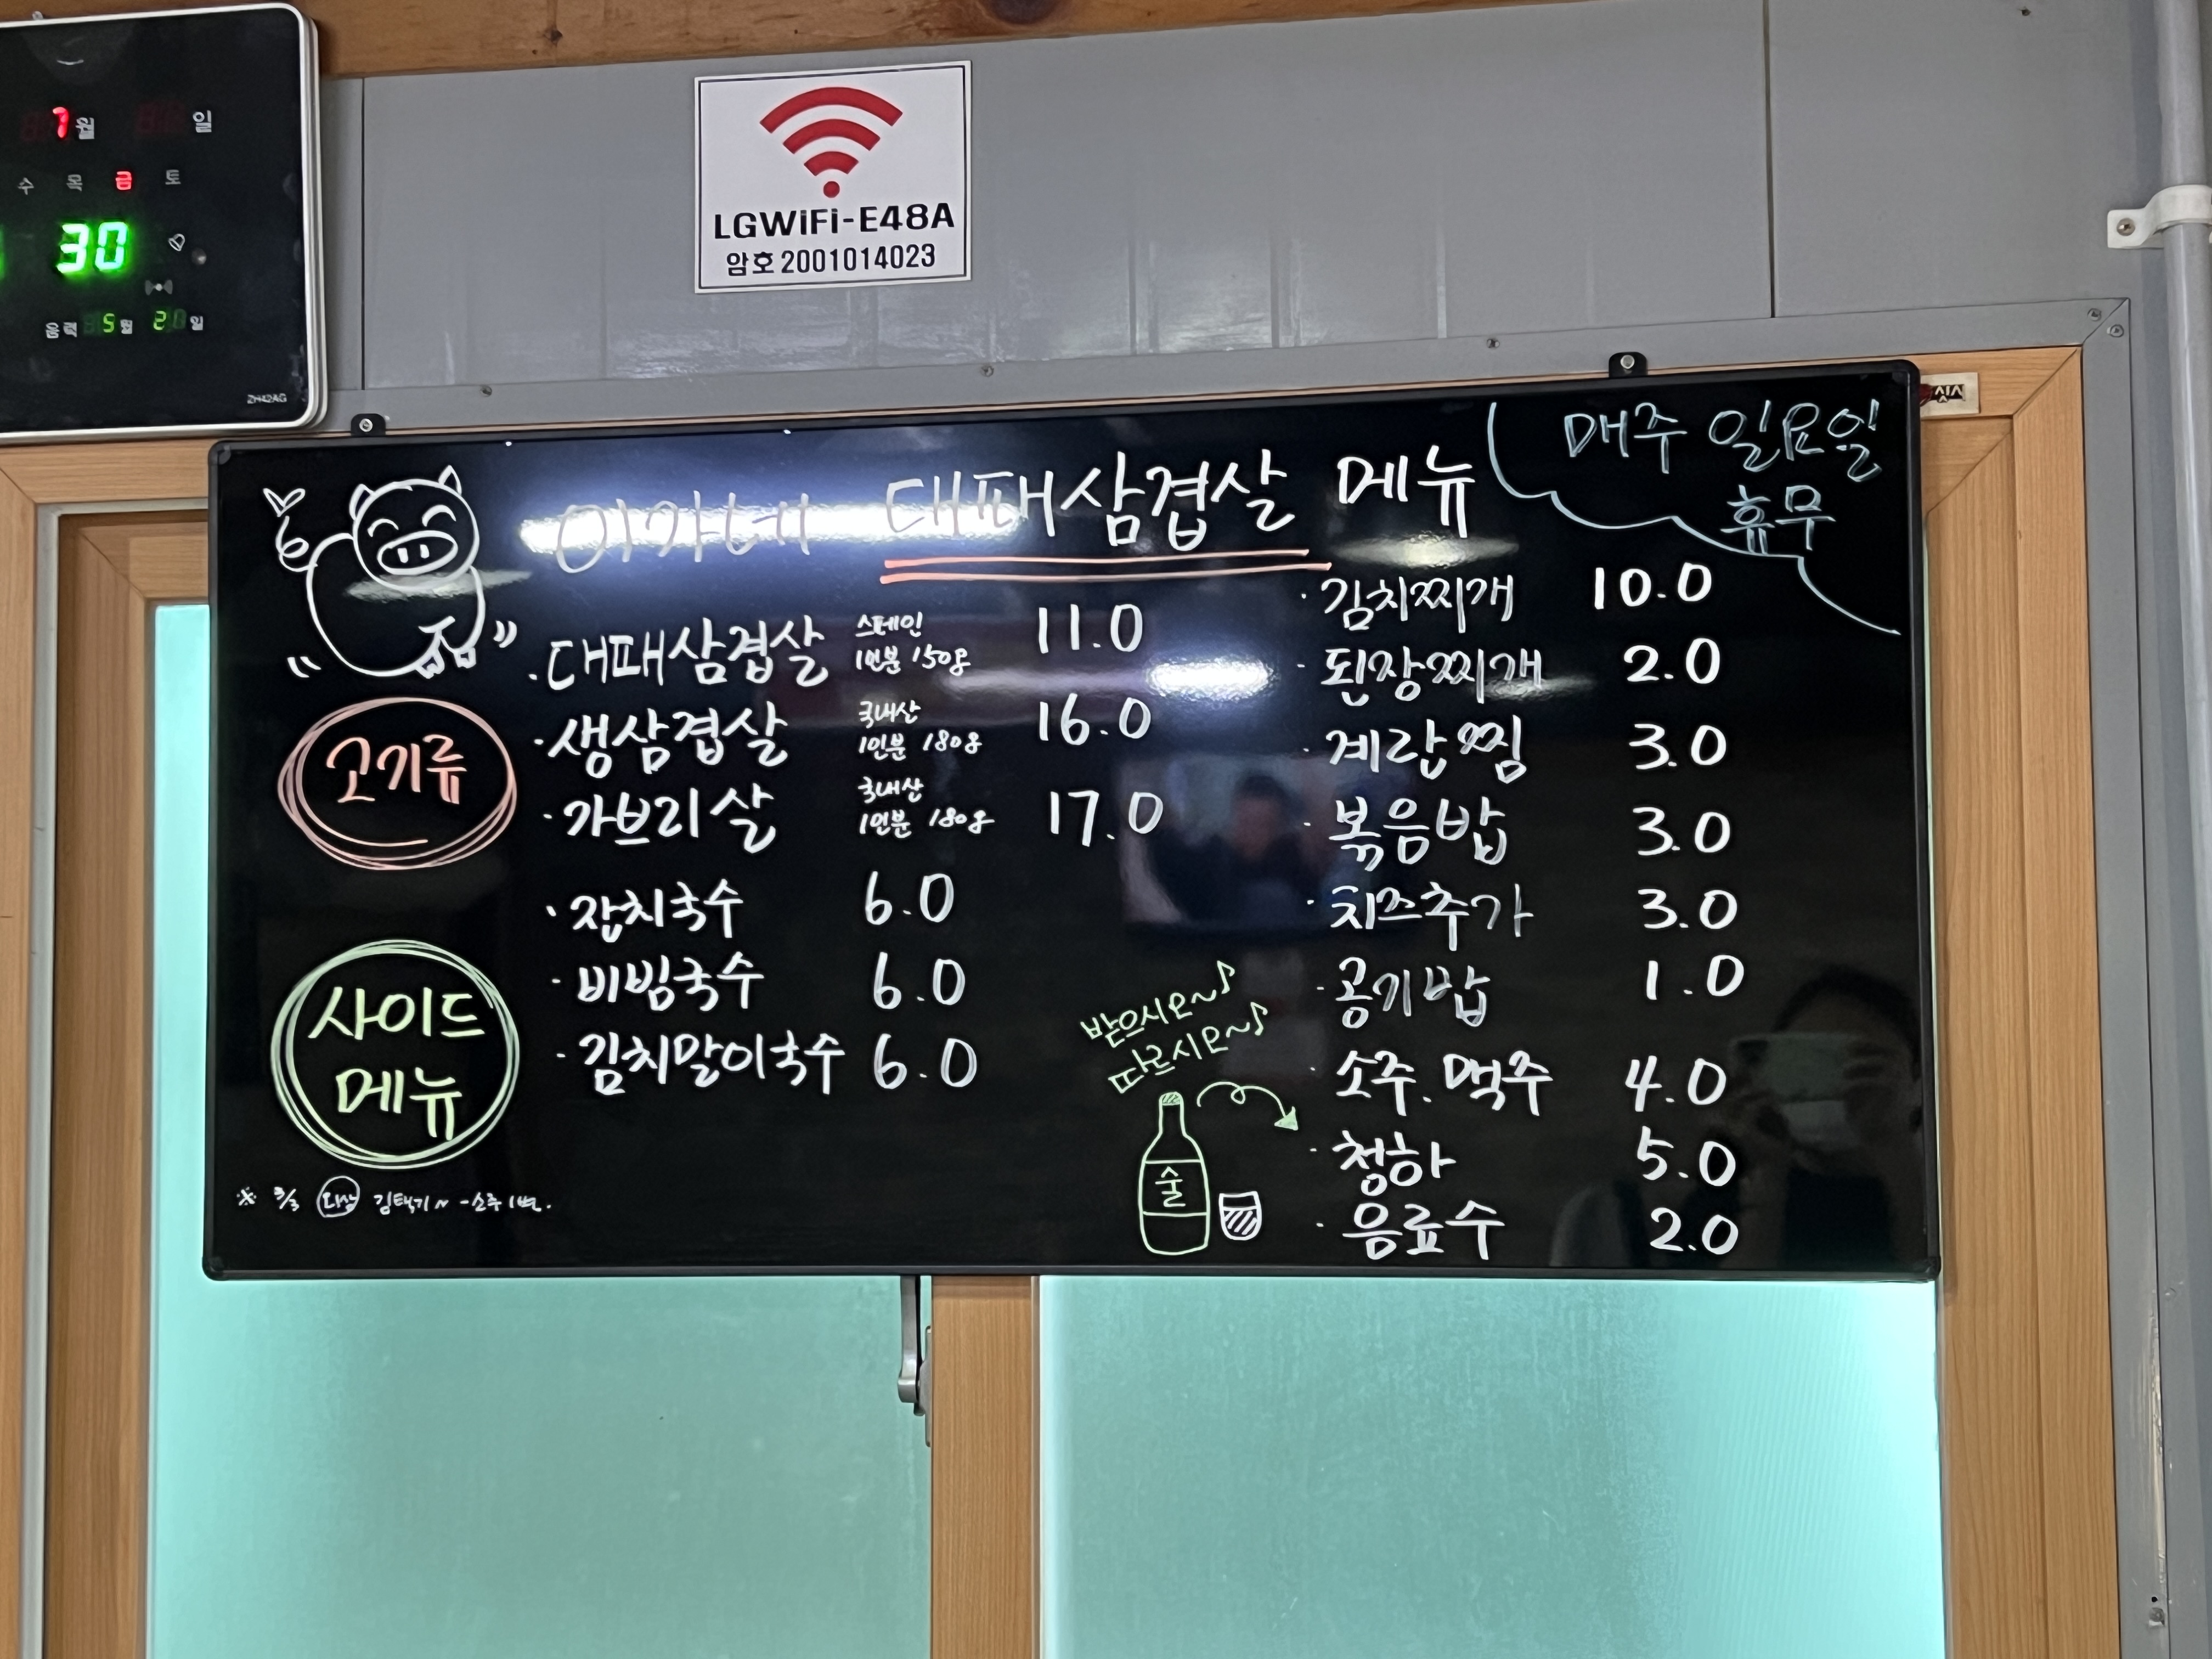 7월 일
수 목 금 토
30
음력 5월 2 일
ZH42AG
LGWiFi-E48A
암호 2001014023
매주 일요일
휴무
이가네 대패삼겹살 메뉴
고기류
· 대패삼겹살 스페인 1인분 150g 11.0
· 생삼겹살 국내산 1인분 180g 16.0
· 가브리살 국내산 1인분 180g 17.0
사이드
메뉴
· 잔치국수 6.0
· 비빔국수 6.0
· 김치말이국수 6.0
· 김치찌개 10.0
· 된장찌개 2.0
· 계란찜 3.0
· 볶음밥 3.0
· 치즈추가 3.0
· 공기밥 1.0
· 소주. 맥주 4.0
· 청하 5.0
· 음료수 2.0
받으시오~♪
따르시오~♪
술
※ 3/3 김택기~ -소주1병.